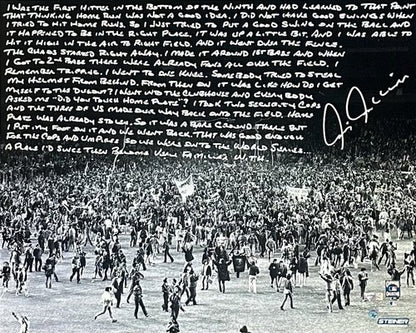 I WAS THE FIRST HITTER IN THE BOTTOM OF THE NINTH AND HAD LEARNED TO THAT POINT
THAT THINKING HOME RUN WAS NOT A GOOD IDEA, I DID NOT HAVE GOOD SWINGS WHEN
I TRIED TO HIT HOME RUNS. SO I JUST TRIED TO PUT A GOOD SWING ON THE BALL AND
IT HAPPENED TO BE IN THE RIGHT PLACE. IT WAS UP A LITTLE BIT. AND I WAS ABLE TO
HIT IT HIGH IN THE AIR TO RIGHT FIELD. AND IT WENT OVER THE FENCE.
THE CROWD STARTED RIGHT AWAY. I MADE IT AROUND 1ST BASE AND WHEN
I GOT TO 2ND BASE THERE WERE ALREADY FANS ALL OVER THE FIELD. I
REMEMBER TRIPPING. I WENT TO ONE KNEE. SOMEBODY TRIED TO STEAL
MY HELMET FROM BEHIND. FROM THEN ON IT WAS LIKE HOW DO I GET
MYSELF TO THE DUGOUT? I WENT INTO THE CLUBHOUSE AND EVERYBODY
ASKED ME "DID YOU TOUCH HOME PLATE"? I TOOK TWO SECURITY COPS
AND THE THREE OF US MADE OUR WAY BACK ONTO THE FIELD. HOME
PLATE WAS ALREADY STOLEN, SO IT WAS A BARE GROUND THERE BUT
I PUT MY FOOT ON IT AND WE WENT BACK. THAT WAS GOOD ENOUGH
FOR THE COPS AND UMPIRES SO WE WERE ONTO THE WORLD SERIES.
A PLACE I'D SINCE THEN BECOME VERY FAMILIAR WITH.
STEINER